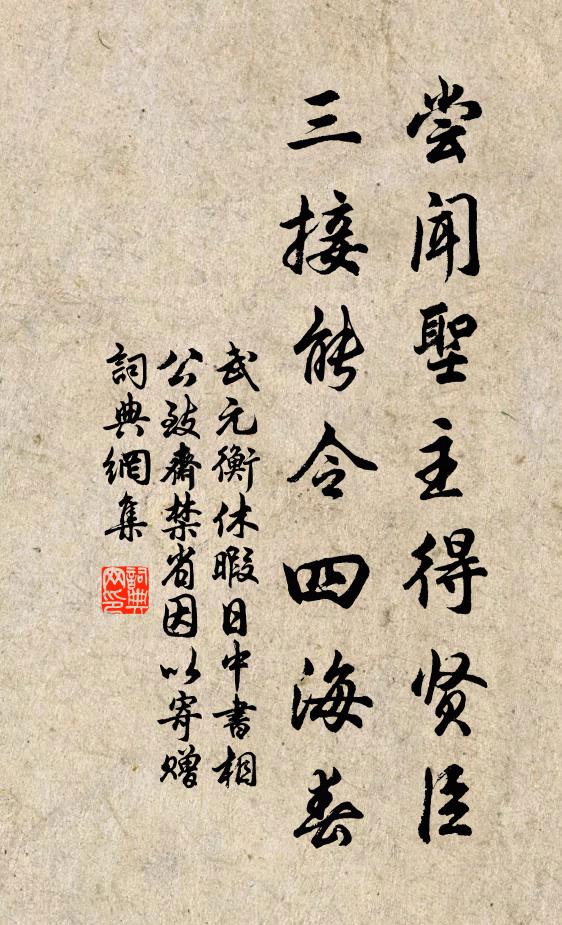 尝闻聖主得贤臣
三接能令四海春
武元衡休暇日中書相
公致齋禁省因以寄赠
詞典網集
詞典网印